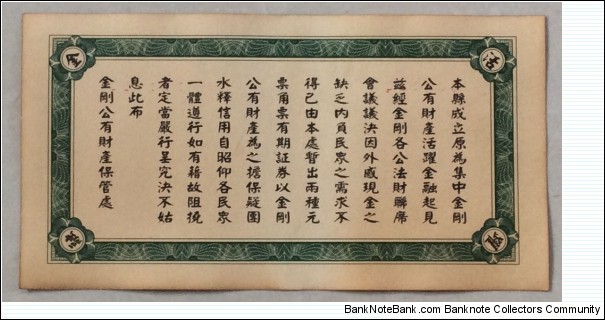 本縣成立原為集中金剛
公有財產活躍金融起見
茲經金剛各公法財聯席
會議議決因外感現金之
缺乏内負民眾之需求不
得已由本處暫出兩種元
票角票有期証券以金剛
公有財產為之擔保疑團
水釋信用自昭仰各民眾
一體遵行如有藉故阻撓
者定當嚴行呈究決不姑
息此布
金剛公有財產保管處
BankNoteBank.com - Banknote Collectors Community